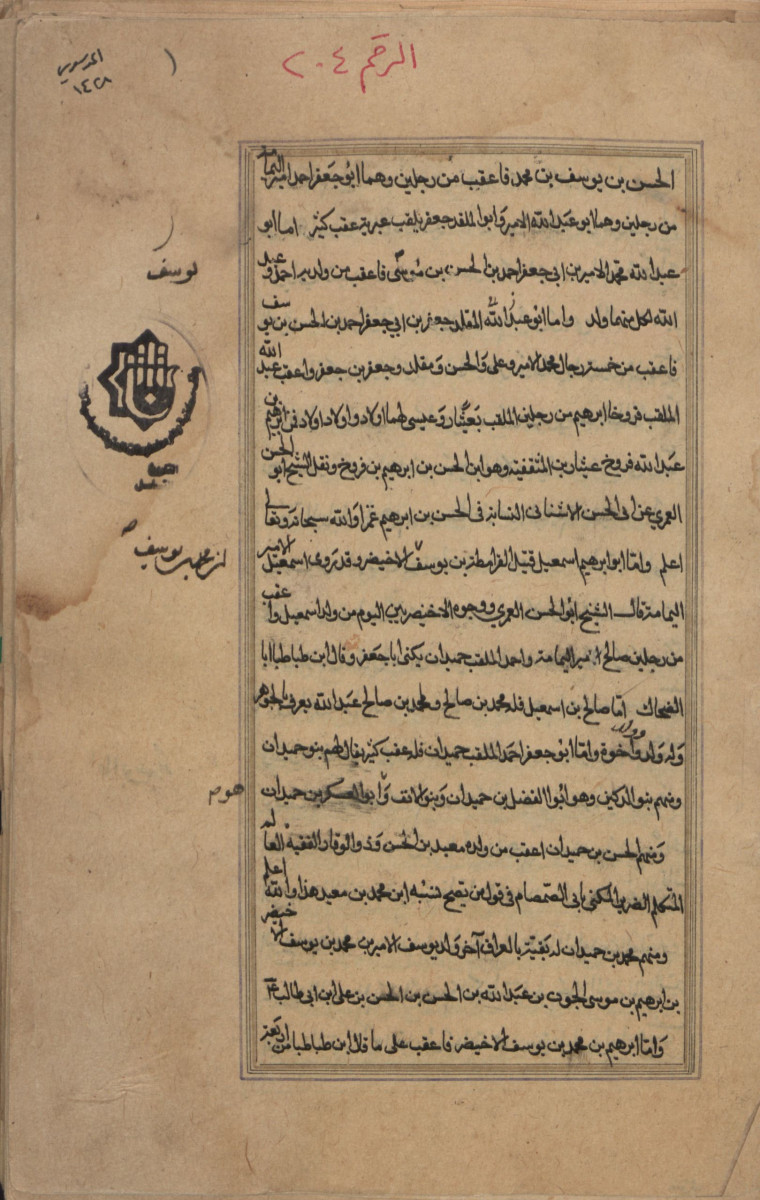 الرقم ٢٠٤
١
١٤٢٨
الحسن بن يوسف بن محمد فاعقب من رجلين وهما ابو جعفر احمد امير اليمامة
من رجلين وهما ابو عبد الله الامير وابو المقلد جعفر يلقب عبرية عقب كثير اما ابو
عبد الله محمد الامير بن ابى جعفر احمد بن الحسن بن يوسف فاعقب من ولديه احمد وعبد
الله لكل منهما ولد واما ابو عبد الله المقلد جعفر بن ابى جعفر احمد بن الحسن بن يوسف
فاعقب من خمسة رجال محمد الامير وعلى والحسن ومقلد وجعفر بن جعفر واعقب عبد الله
الملقب فروخا ابرهيم من رجلين الملقب بعيثار وعيسى لهما اولاد واولاد اولاد فمن ابرهيم بن
عبد الله فروخ عيثار بن الثقفية وهو ابن الحسن بن ابرهيم بن فروخ ونقل الشيخ ابو الحسن
العمري عن ابى الحسن الاشنانى النسابة فى الحسن بن ابرهيم غمزا والله سبحانه وتعالى
اعلم واما ابو ابرهيم اسمعيل قتيل القرامطة بن يوسف الاخيضر وقد روى اسمعيل الامير
اليمامة قال الشيخ ابو الحسن العمري ووجوه الاخيضريين اليوم من ولد اسمعيل واعقب
من رجلين صالح امير اليمامة واحمد الملقب حميدان يكنى ابا جعفر وقال ابن طباطبا ابا
الضحاك اما صالح بن اسمعيل فله محمد بن صالح ولمحمد بن صالح عبد الله يعرف بالجوهر
وله ولد وولد واخوة واما ابو جعفر احمد الملقب حميدان فله عقب كثير يقال لهم بنو حميدان
ومنهم بنو الدكين وهو ابو الفضل بن حميدان وبنو الانف وابو العسكر بن حميدان
ومنهم الحسن بن حميدان اعقب من ولده معبد بن الحسن وذو الوقار الفقيه العالم
المتكلم الضرير المكنى بابى الصمصام فى قول من يصحح نسبه ابن محمد بن معبد هذا والله اعلم
ومنهم محمد بن حميدان له بقية بالعراق آخر ولد يوسف الامير بن محمد بن يوسف الاخيضر
بن ابرهيم بن موسى الجون بن عبد الله بن الحسن بن الحسن بن على ابن ابى طالب ع
واما ابرهيم بن محمد بن يوسف الاخيضر فاعقب على ما قال ابن طباطبا من اربعة
يوسف
بن محمد بن يوسف
هوم